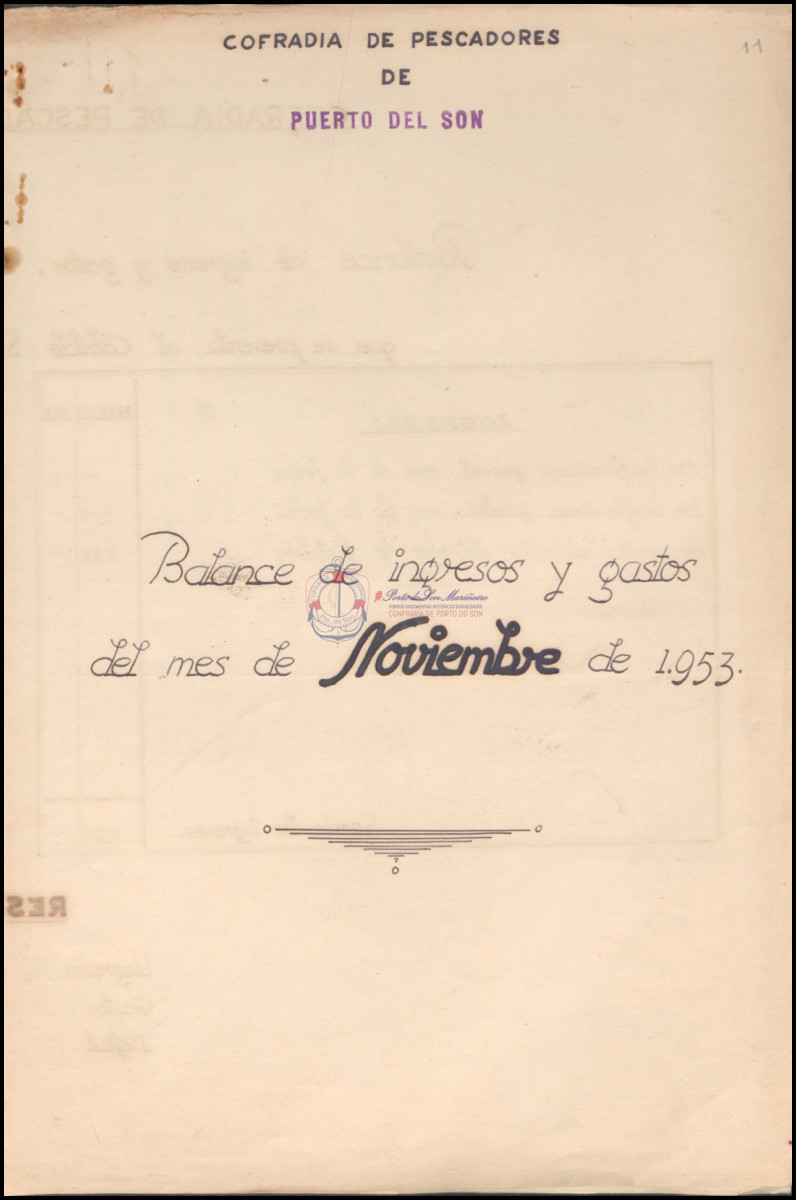 COFRADIA DE PESCADORES
11
DE
PUERTO DEL SON
Balance de ingresos y gastos
Porto do Son Mariñeiro
FONDOS DOCUMENTAIS HISTÓRICOS DIXITALIZADOS
CONFRARÍA DE PORTO DO SON
del mes de Noviembre de 1.953.